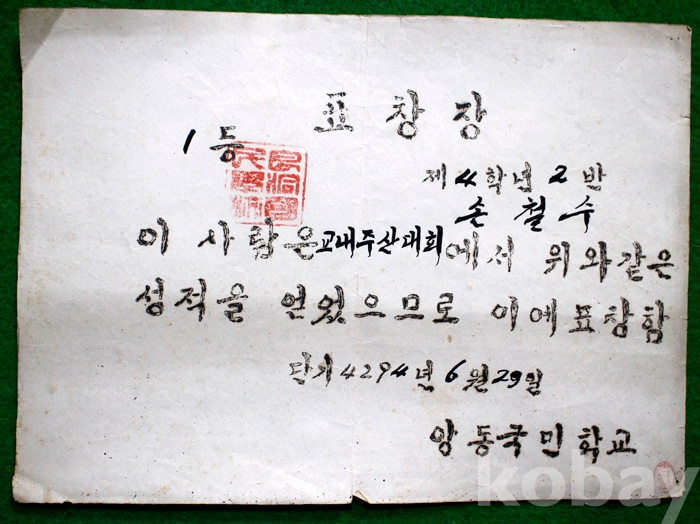 표창장
1등
제4학년 2반
손철수
이 사람은 교내주산대회에서 위와같은
성적을 얻었으므로 이에 표창함
단기 4294년 6월 29일
양동국민학교
kobay